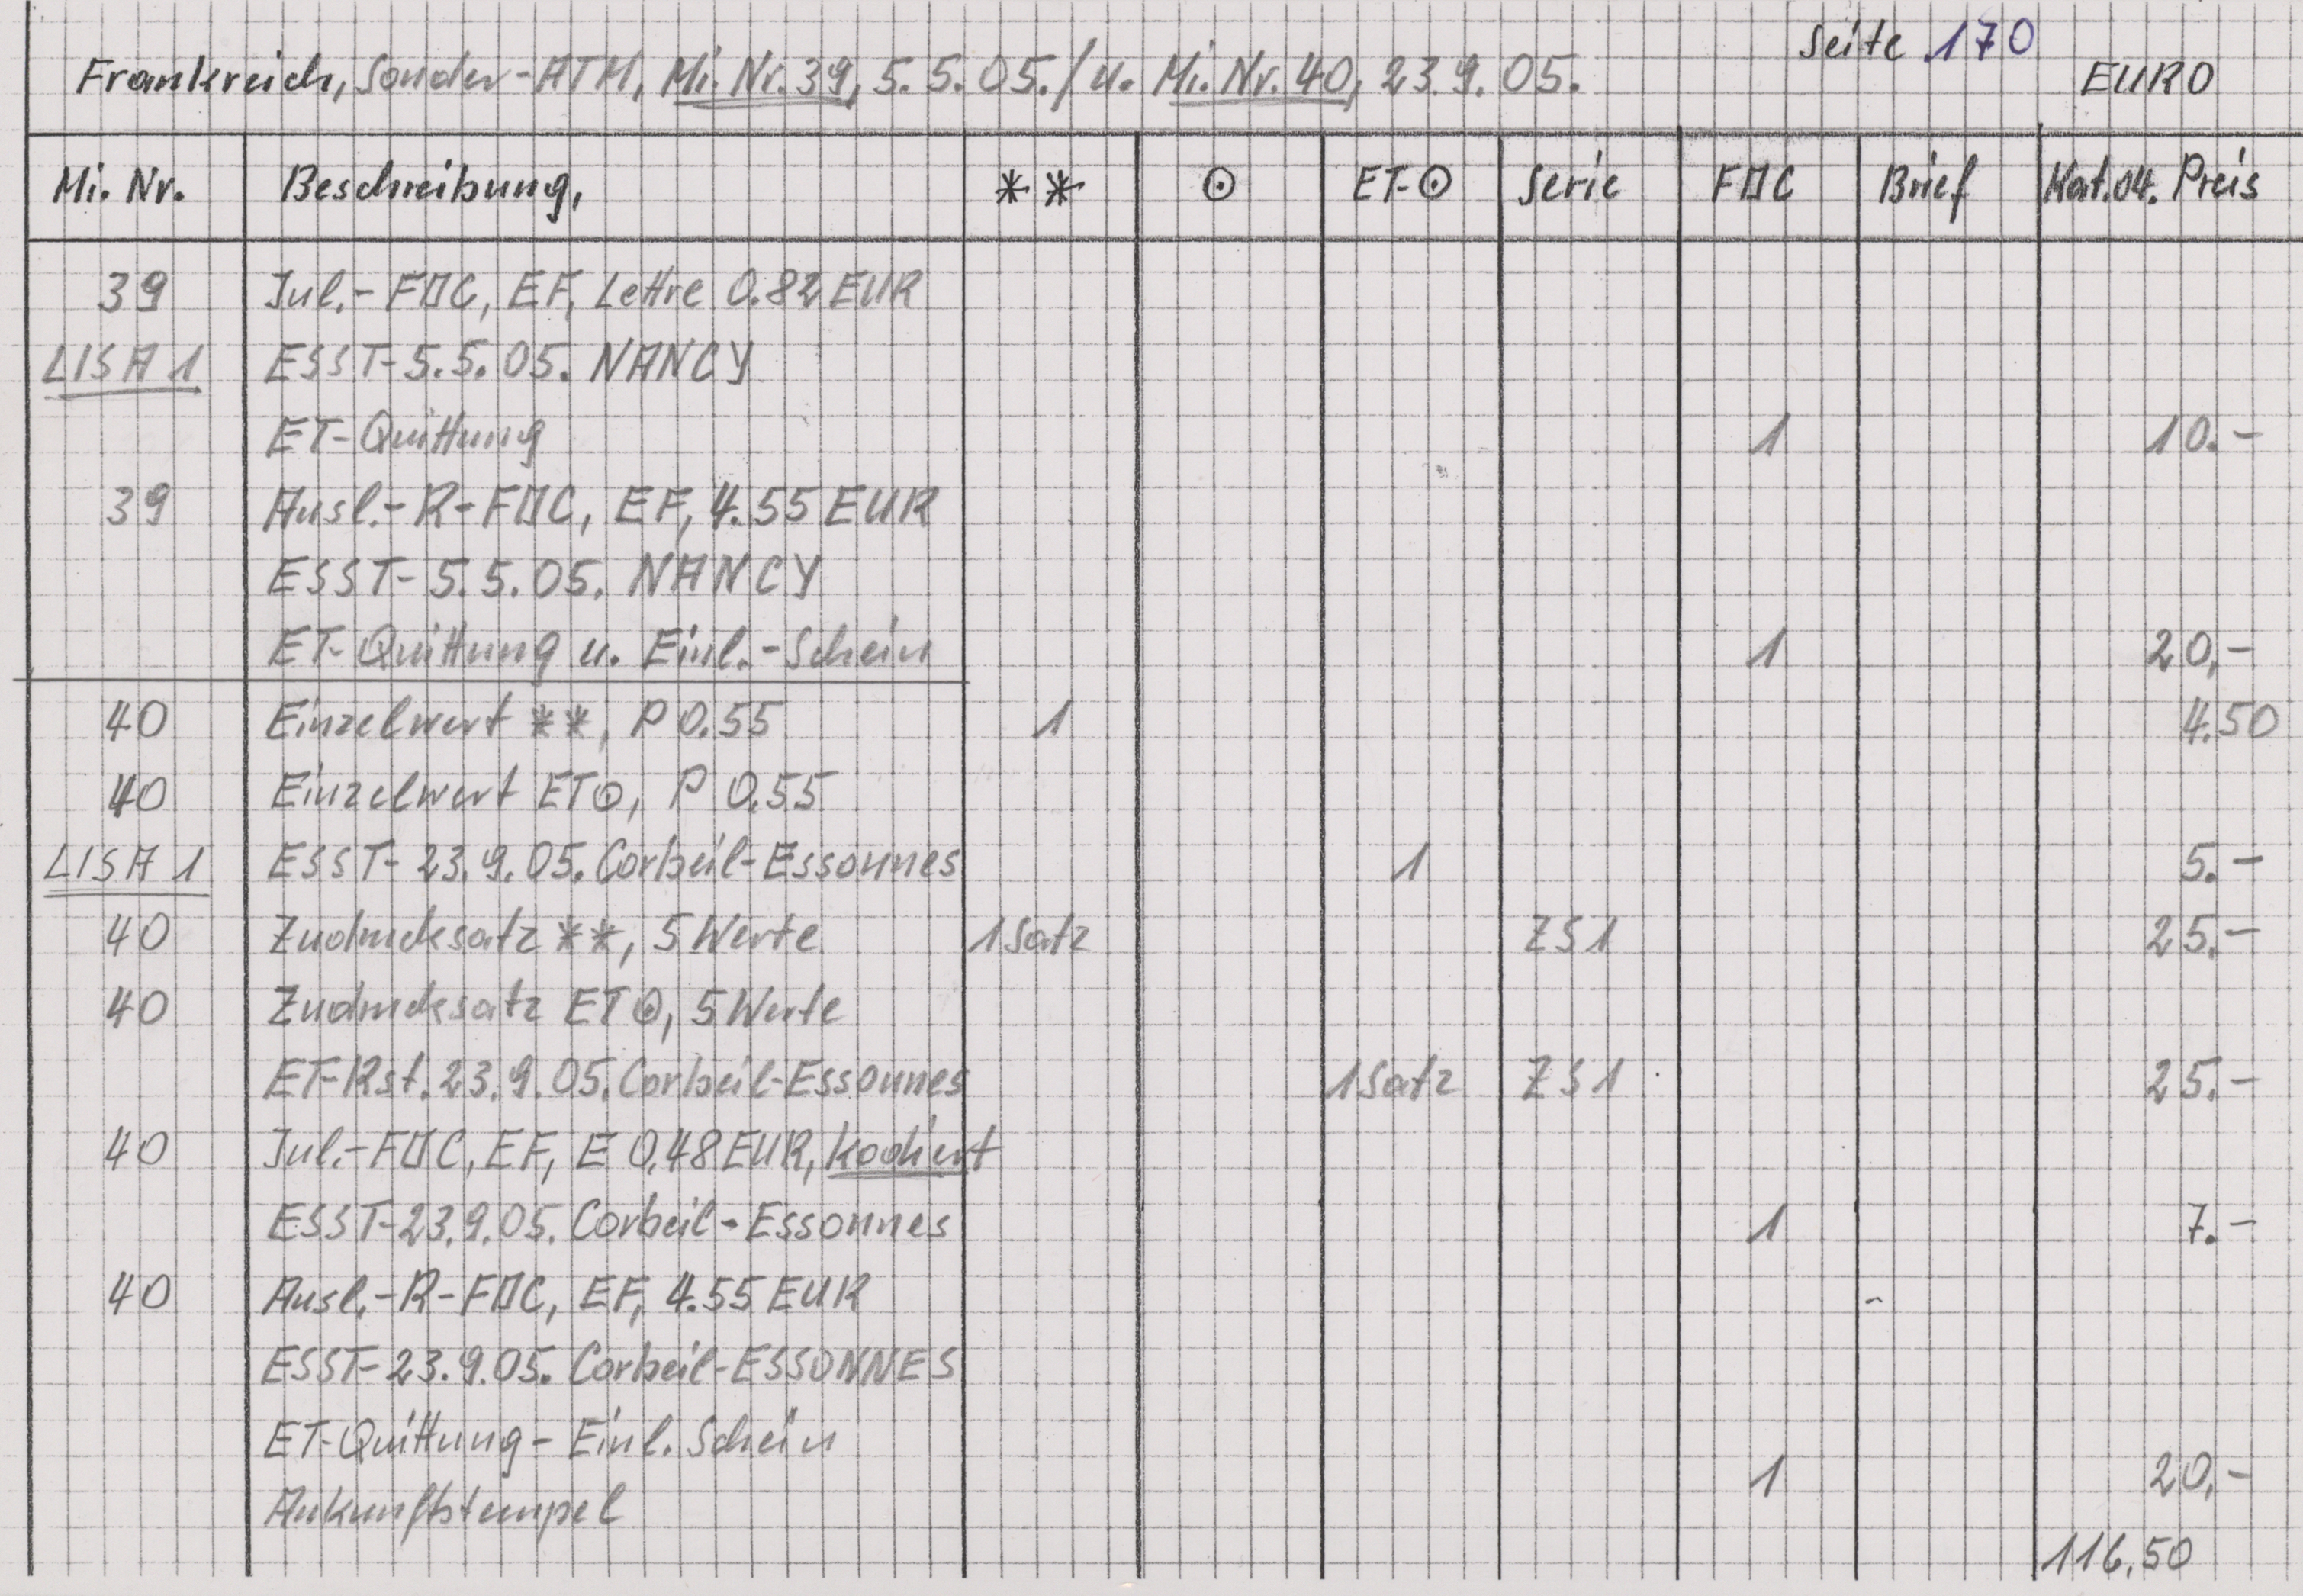 Seite 170
Frankreich, Sonder-ATM, Mi. Nr. 39, 5.5.05./u. Mi. Nr. 40, 23.9.05. EURO
Mi. Nr. Beschreibung, ** ⊙ ET-⊙ Serie FDC Brief Kat.04. Preis
39 Inl.- FDC, EF, Lettre 0.82 EUR
LISA 1 ESST-5.5.05. NANCY
ET-Quittung 1 10.-
39 Ausl.-R-FDC, EF, 4.55 EUR
ESST-5.5.05. NANCY
ET-Quittung u. Einl.-Schein 1 20,-
40 Einzelwert **, P 0.55 1 4.50
40 Einzelwert ET⊙, P 0.55
LISA 1 ESST-23.9.05. Corbeil-Essonnes 1 5.-
40 Zudrucksatz **, 5 Werte 1 Satz ZS1 25.-
40 Zudrucksatz ET⊙, 5 Werte
ET-Rst. 23.9.05. Corbeil-Essonnes 1 Satz ZS1 25.-
40 Inl.-FDC, EF, E 0,48 EUR, kodiert
ESST-23.9.05. Corbeil-Essonnes 1 7.-
40 Ausl.-R-FDC, EF, 4.55 EUR
ESST-23.9.05. Corbeil-ESSONNES
ET-Quittung - Einl. Schein
1 20,-
Ankunftstempel
116,50